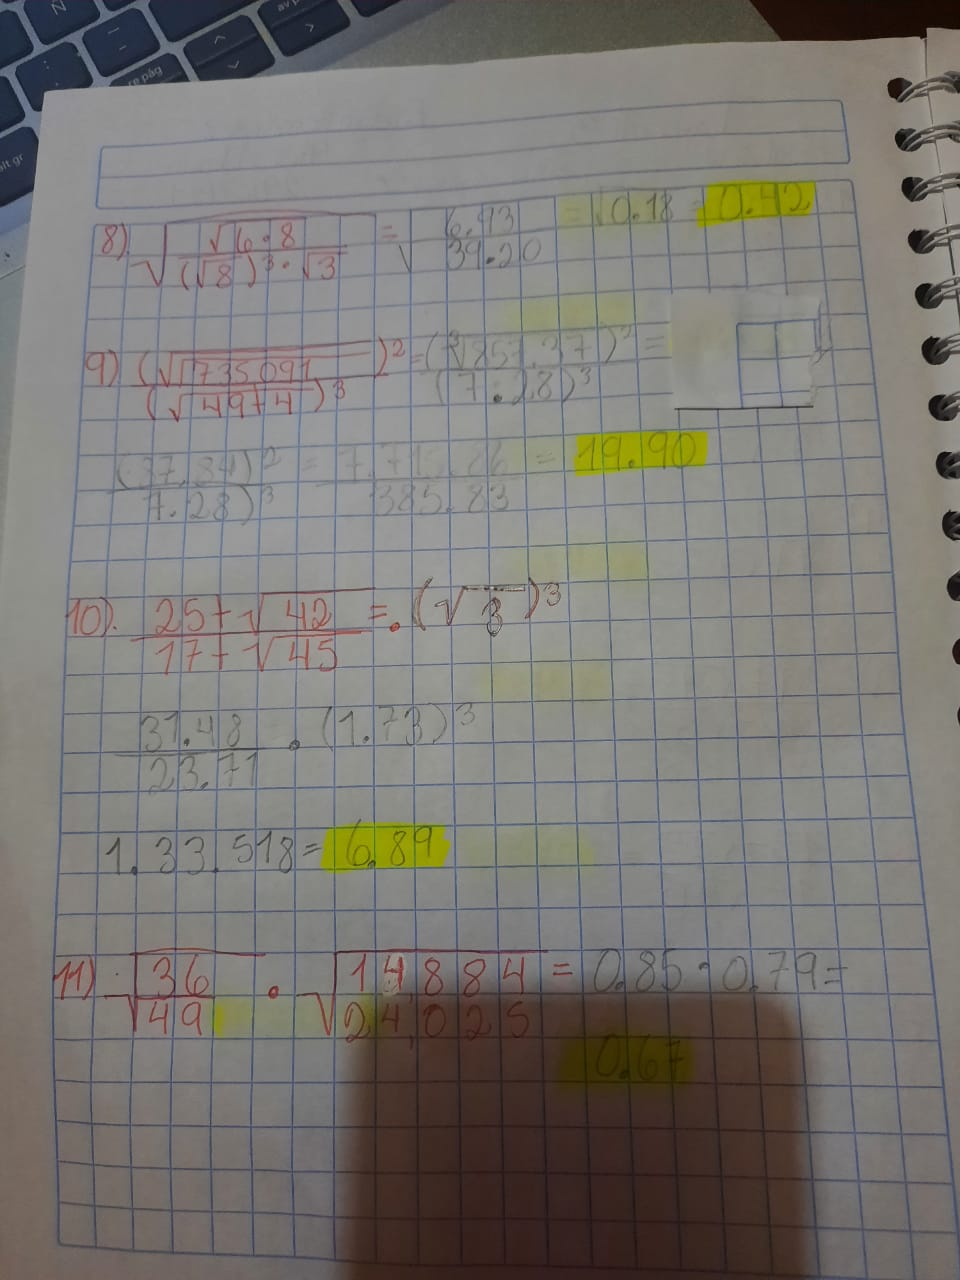 8) √(√6·8 / (√8)³·√3) = √(6.93 / 39.20) = √0.18 = 0.42
9) (√√735091)² / (√49+4)³ = (√857.37)² / (7.28)³ =
(37.84)² / 7.28)³ = / 385.83 = 19.90
10). 25+√42 / 17+√45 = . (√3)³
31.48 / 23.71 . (1.73)³
1.33.518 = 6.89
11) √(36/49) · √(14,884 / 24,025) = 0.85 · 0.79 =
0.67